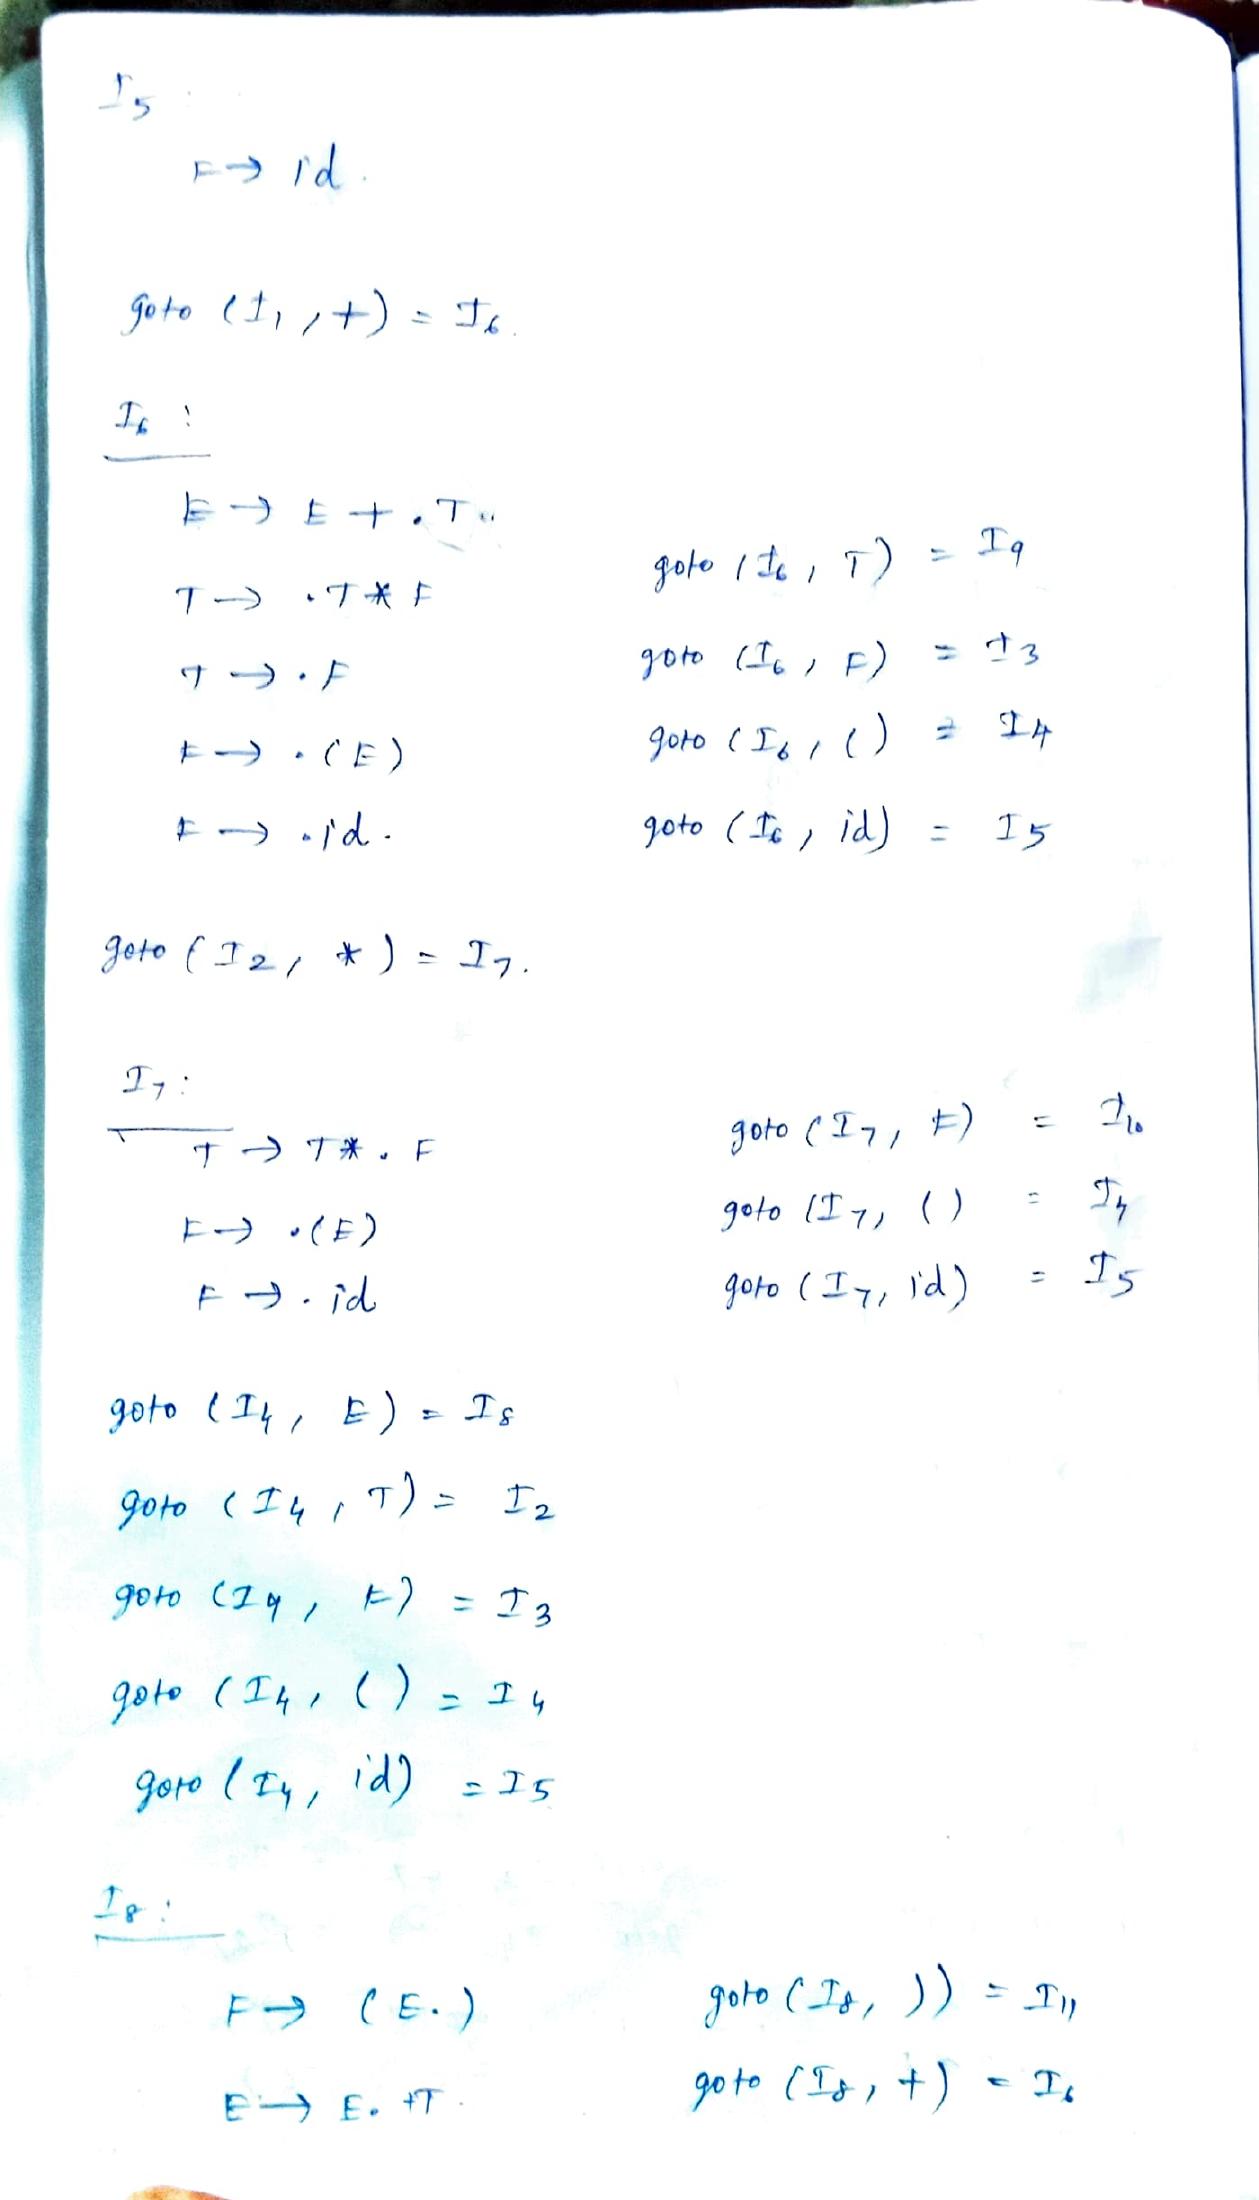 I5 :
F → id.
goto (I1, +) = I6.
I6 :
E → E + .T
T → .T * F
T → .F
F → .(E)
F → .id.
goto (I6, T) = I9
goto (I6, F) = I3
goto (I6, () = I4
goto (I6, id) = I5
goto (I2, *) = I7.
I7 :
T → T * . F
F → .(E)
F → . id
goto (I7, F) = I10
goto (I7, () = I4
goto (I7, id) = I5
goto (I4, E) = I8
goto (I4, T) = I2
goto (I4, F) = I3
goto (I4, () = I4
goto (I4, id) = I5
I8 :
F → (E.)
E → E. +T.
goto (I8, )) = I11
goto (I8, +) = I6